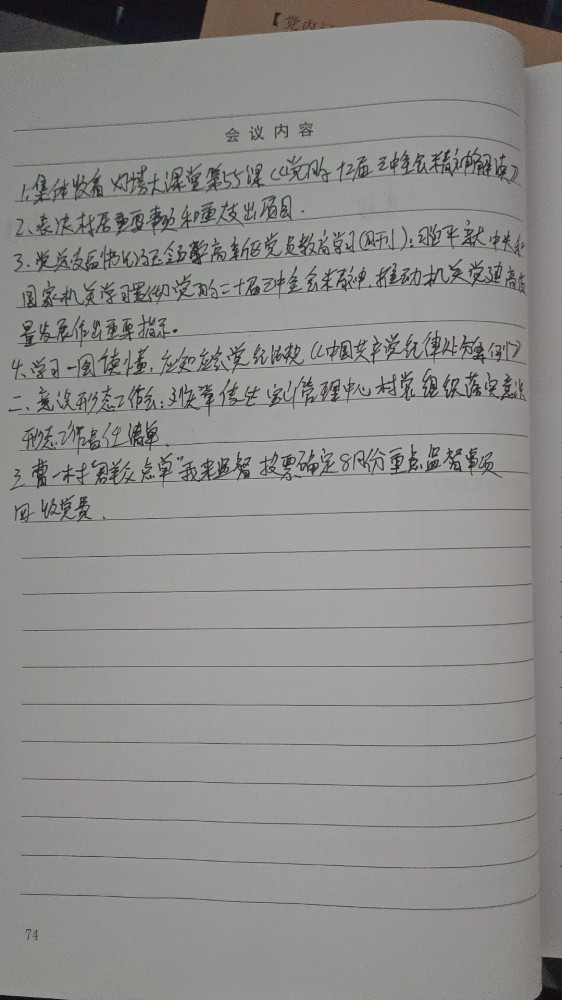 【党内
会议内容
1.集体收看灯塔大课堂第55课《党的二十届三中全会精神解读》
2、表决村居重要事项和重大支出项目.
3、党员教育学习(周刊):习近平 中央和
国家机关学习贯彻党的二十届三中全会精神,推动机关党建高质
量发展作出重要指示。
4、学习一图读懂,应知应会党纪法规《中国共产党纪律处分条例》
二、意识形态工作会: 传达 管理中心村党组织落实意识
形态工作责任清单.
三 曹一村"群众点单"我来监督 投票确定8月份重点监督事项
四 收党费.
74